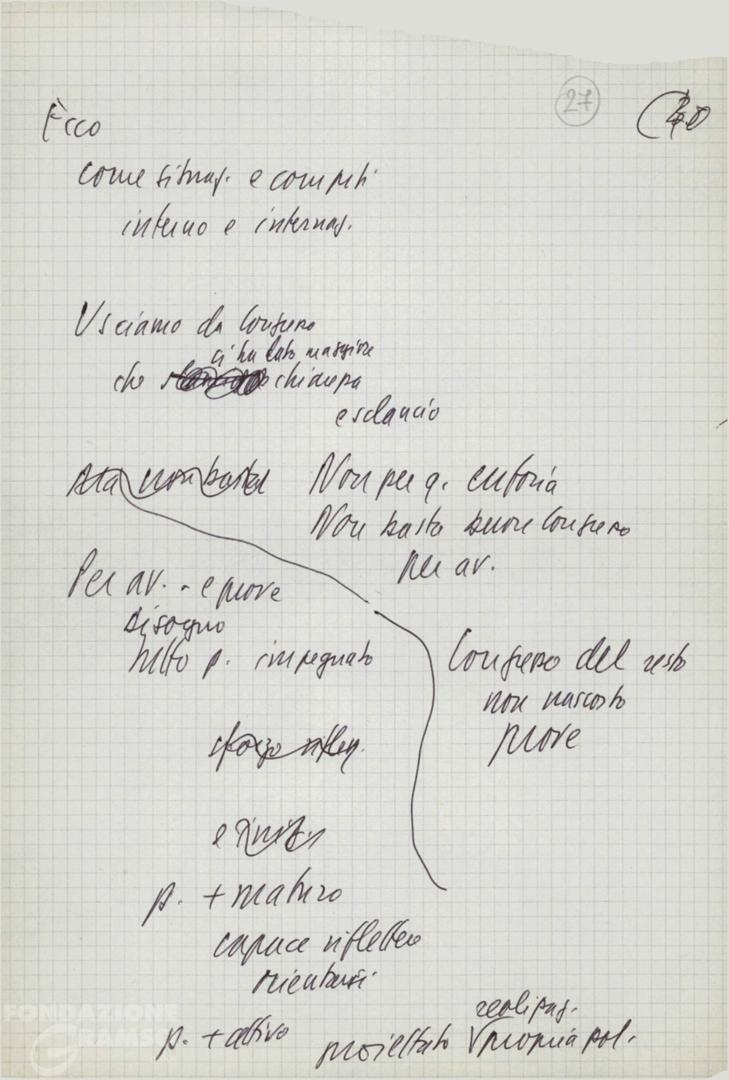 27
Ècco
come situaz. e compiti
interno e internaz.
Usciamo da Congresso
ci ha dato maggiore
che chiarezza
e slancio
Ma non basta
Non per q. euforia
Non basta buon Congresso
per av.
Per av. - e prove
bisogno
tutto p. impegnato
Congresso del resto
non nascosto
prove
sforzo rifless.
p. + maturo
capace riflettere
orientarsi
p. + attivo
realizzaz.
proiettato propria pol.
FONDAZIONE
GRAMSCI